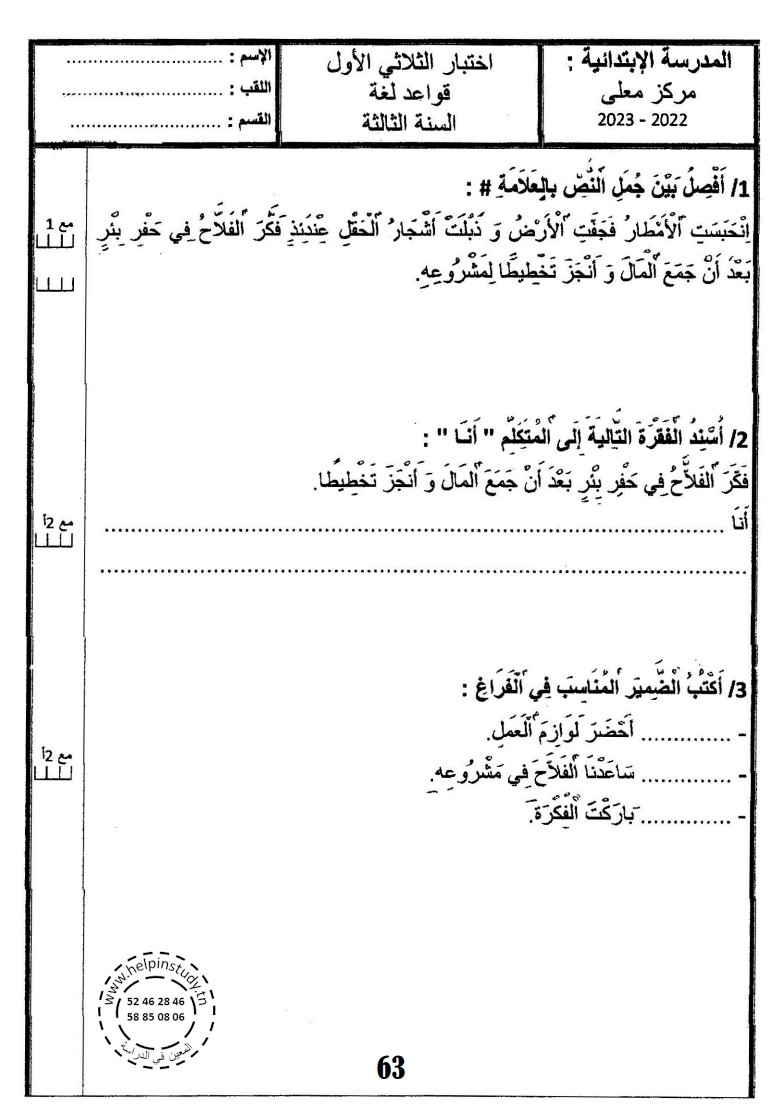 المدرسة الإبتدائية :
مركز معلى
2023 - 2022
اختبار الثلاثي الأول
قواعد لغة
السنة الثالثة
الإسم : ..............................
اللقب : ..............................
القسم : ..............................
1/ أَفْصِلُ بَيْنَ جُمَلِ النَّصِّ بِالعَلَامَةِ # :
اِنْحَبَسَتِ الْأَمْطَارُ فَجَفَّتِ الْأَرْضُ وَ ذَبُلَتْ أَشْجَارُ الْحَقْلِ عِنْدَئِذٍ فَكَّرَ الفَلاَّحُ فِي حَفْرِ بِئْرٍ
بَعْدَ أَنْ جَمَعَ الْمَالَ وَ أَنْجَزَ تَخْطِيطًا لِمَشْرُوعِهِ.
مع 1
2/ أُسْنِدُ الْفَقْرَةَ التَّالِيَةَ إِلَى الْمُتَكَلِّمِ " أَنَا " :
فَكَّرَ الفَلاَّحُ فِي حَفْرِ بِئْرٍ بَعْدَ أَنْ جَمَعَ الْمَالَ وَ أَنْجَزَ تَخْطِيطًا.
أَنَا ..............................
..............................
مع 2أ
3/ أَكْتُبُ الضَّمِيرَ الْمُنَاسِبَ فِي الْفَرَاغِ :
- .............. أَحْضَرَ لَوَازِمَ الْعَمَلِ.
- .............. سَاعَدْنَا الْفَلاَّحَ فِي مَشْرُوعِهِ.
- .............. بَارَكْتَ الْفِكْرَةَ.
مع 2أ
www.helpinstudy.tn
52 46 28 46
58 85 08 06
المعين في الدراسة
63